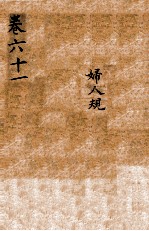 卷六十一
婦人規